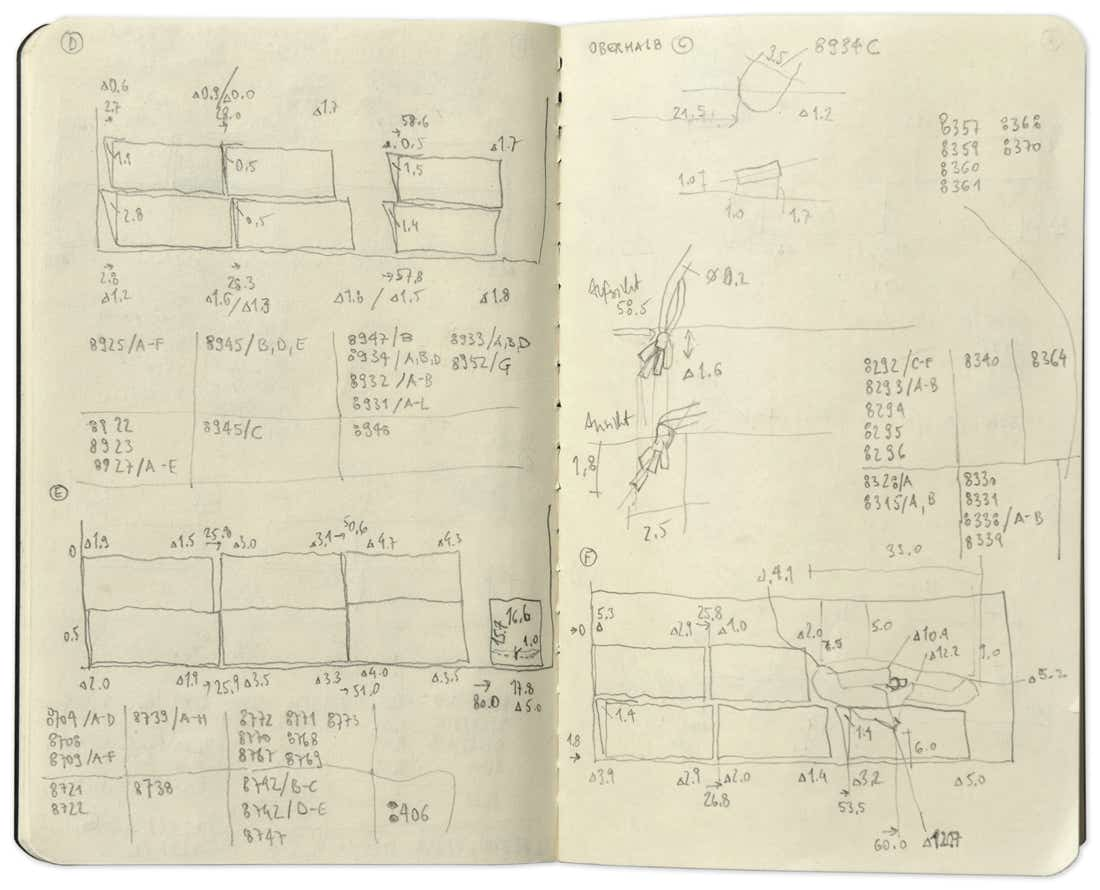 D
Δ0.6
2.7
Δ0.9/Δ0.0
28.0
Δ1.7
58.6
Δ0.5
Δ1.7
1.1
0.5
1.5
2.8
0.5
1.4
2.8
Δ1.2
28.3
Δ1.6/Δ1.3
Δ1.6 / Δ1.5
57.8
Δ1.8
8925/A-F
8945/B,D,E
8947/B
8933/A,B,D
8934/A,B,D
8952/G
8932/A-B
8931/A-L
8922
8923
8927/A-E
8945/C
8946
E
0
Δ1.9
Δ1.5
25.8
Δ3.0
Δ3.1
50,6
Δ4.7
Δ4.3
0.5
16,6
15,7
1.0
Δ2.0
Δ1.9
25,9
Δ3.5
Δ3.3
51.0
Δ4.0
Δ3.5
80.0
17.8
Δ5.0
8704/A-D
8739/A-H
8772 8771 8773
8708
8770 8768
8709/A-F
8767 8769
8721
8738
8742/B-C
8722
8742/D-E
8406
8747
OBERHALB C
3.5
8934C
21.5
Δ1.2
1.0
1.0
1.7
8357 8368
8359 8370
8360
8361
Aufsicht
58.5
Ø 0.2
Δ1.6
Ansicht
1,8
2.5
8292/C-F
8340
8364
8293/A-B
8294
8295
8296
8328/A
8330
8315/A,B
8331
8338/A-B
8339
33.0
F
Δ4.1
5.3
0
Δ
Δ2.9
25.8
Δ1.0
Δ2.0
7.5
5.0
Δ10.4
Δ12.2
Δ5.2
1.4
1.4
6.0
1.8
Δ3.9
Δ2.9
26.8
Δ2.0
Δ1.4
Δ3.2
53.5
Δ5.0
60.0